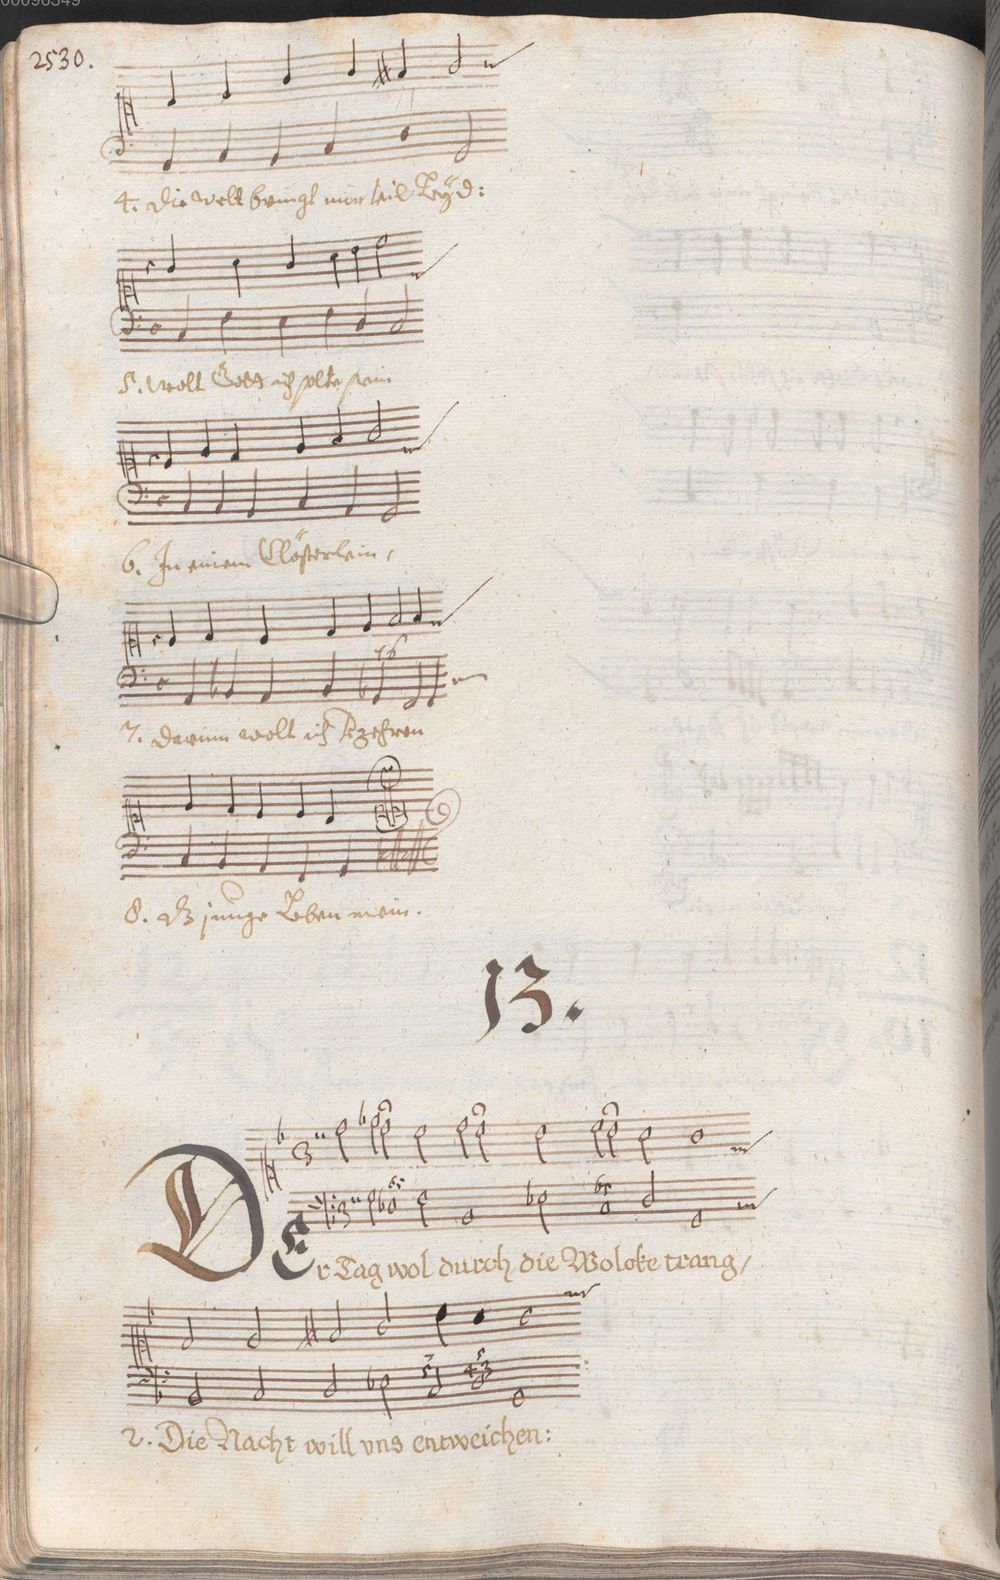 00096349
2530.
4. Die welt bringt mir teil Leÿd:
5. wolt Gott ich solte sein
6. In einem Clösterlein,
76
7. Darinn wolt ich verzehren
8. dz junge Leben mein.
13.
DEr Tag wol durch die Wolcke trang/
5 4 3
2. Die Nacht will vns entweichen: